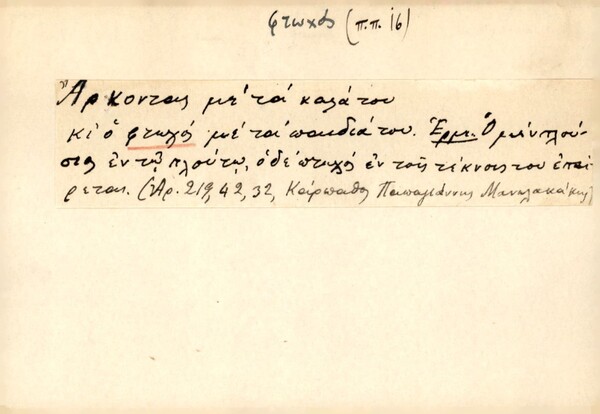 φτωχός (π.π. 16)
Ἄρκοντας μέ τά καλά του
κι ὁ φτωχός μέ τά παιδιά του. Ἑρμ. Ὁ μέν πλού-
σιος ἐν τῷ πλούτῳ, ὁ δέ πτωχός ἐν τοῖς τέκνοις του ἐπαί-
ρεται. (Ἀρ. 219, 42, 32, Κάρπαθος Παπαγιάννης Μανωλακάκης)